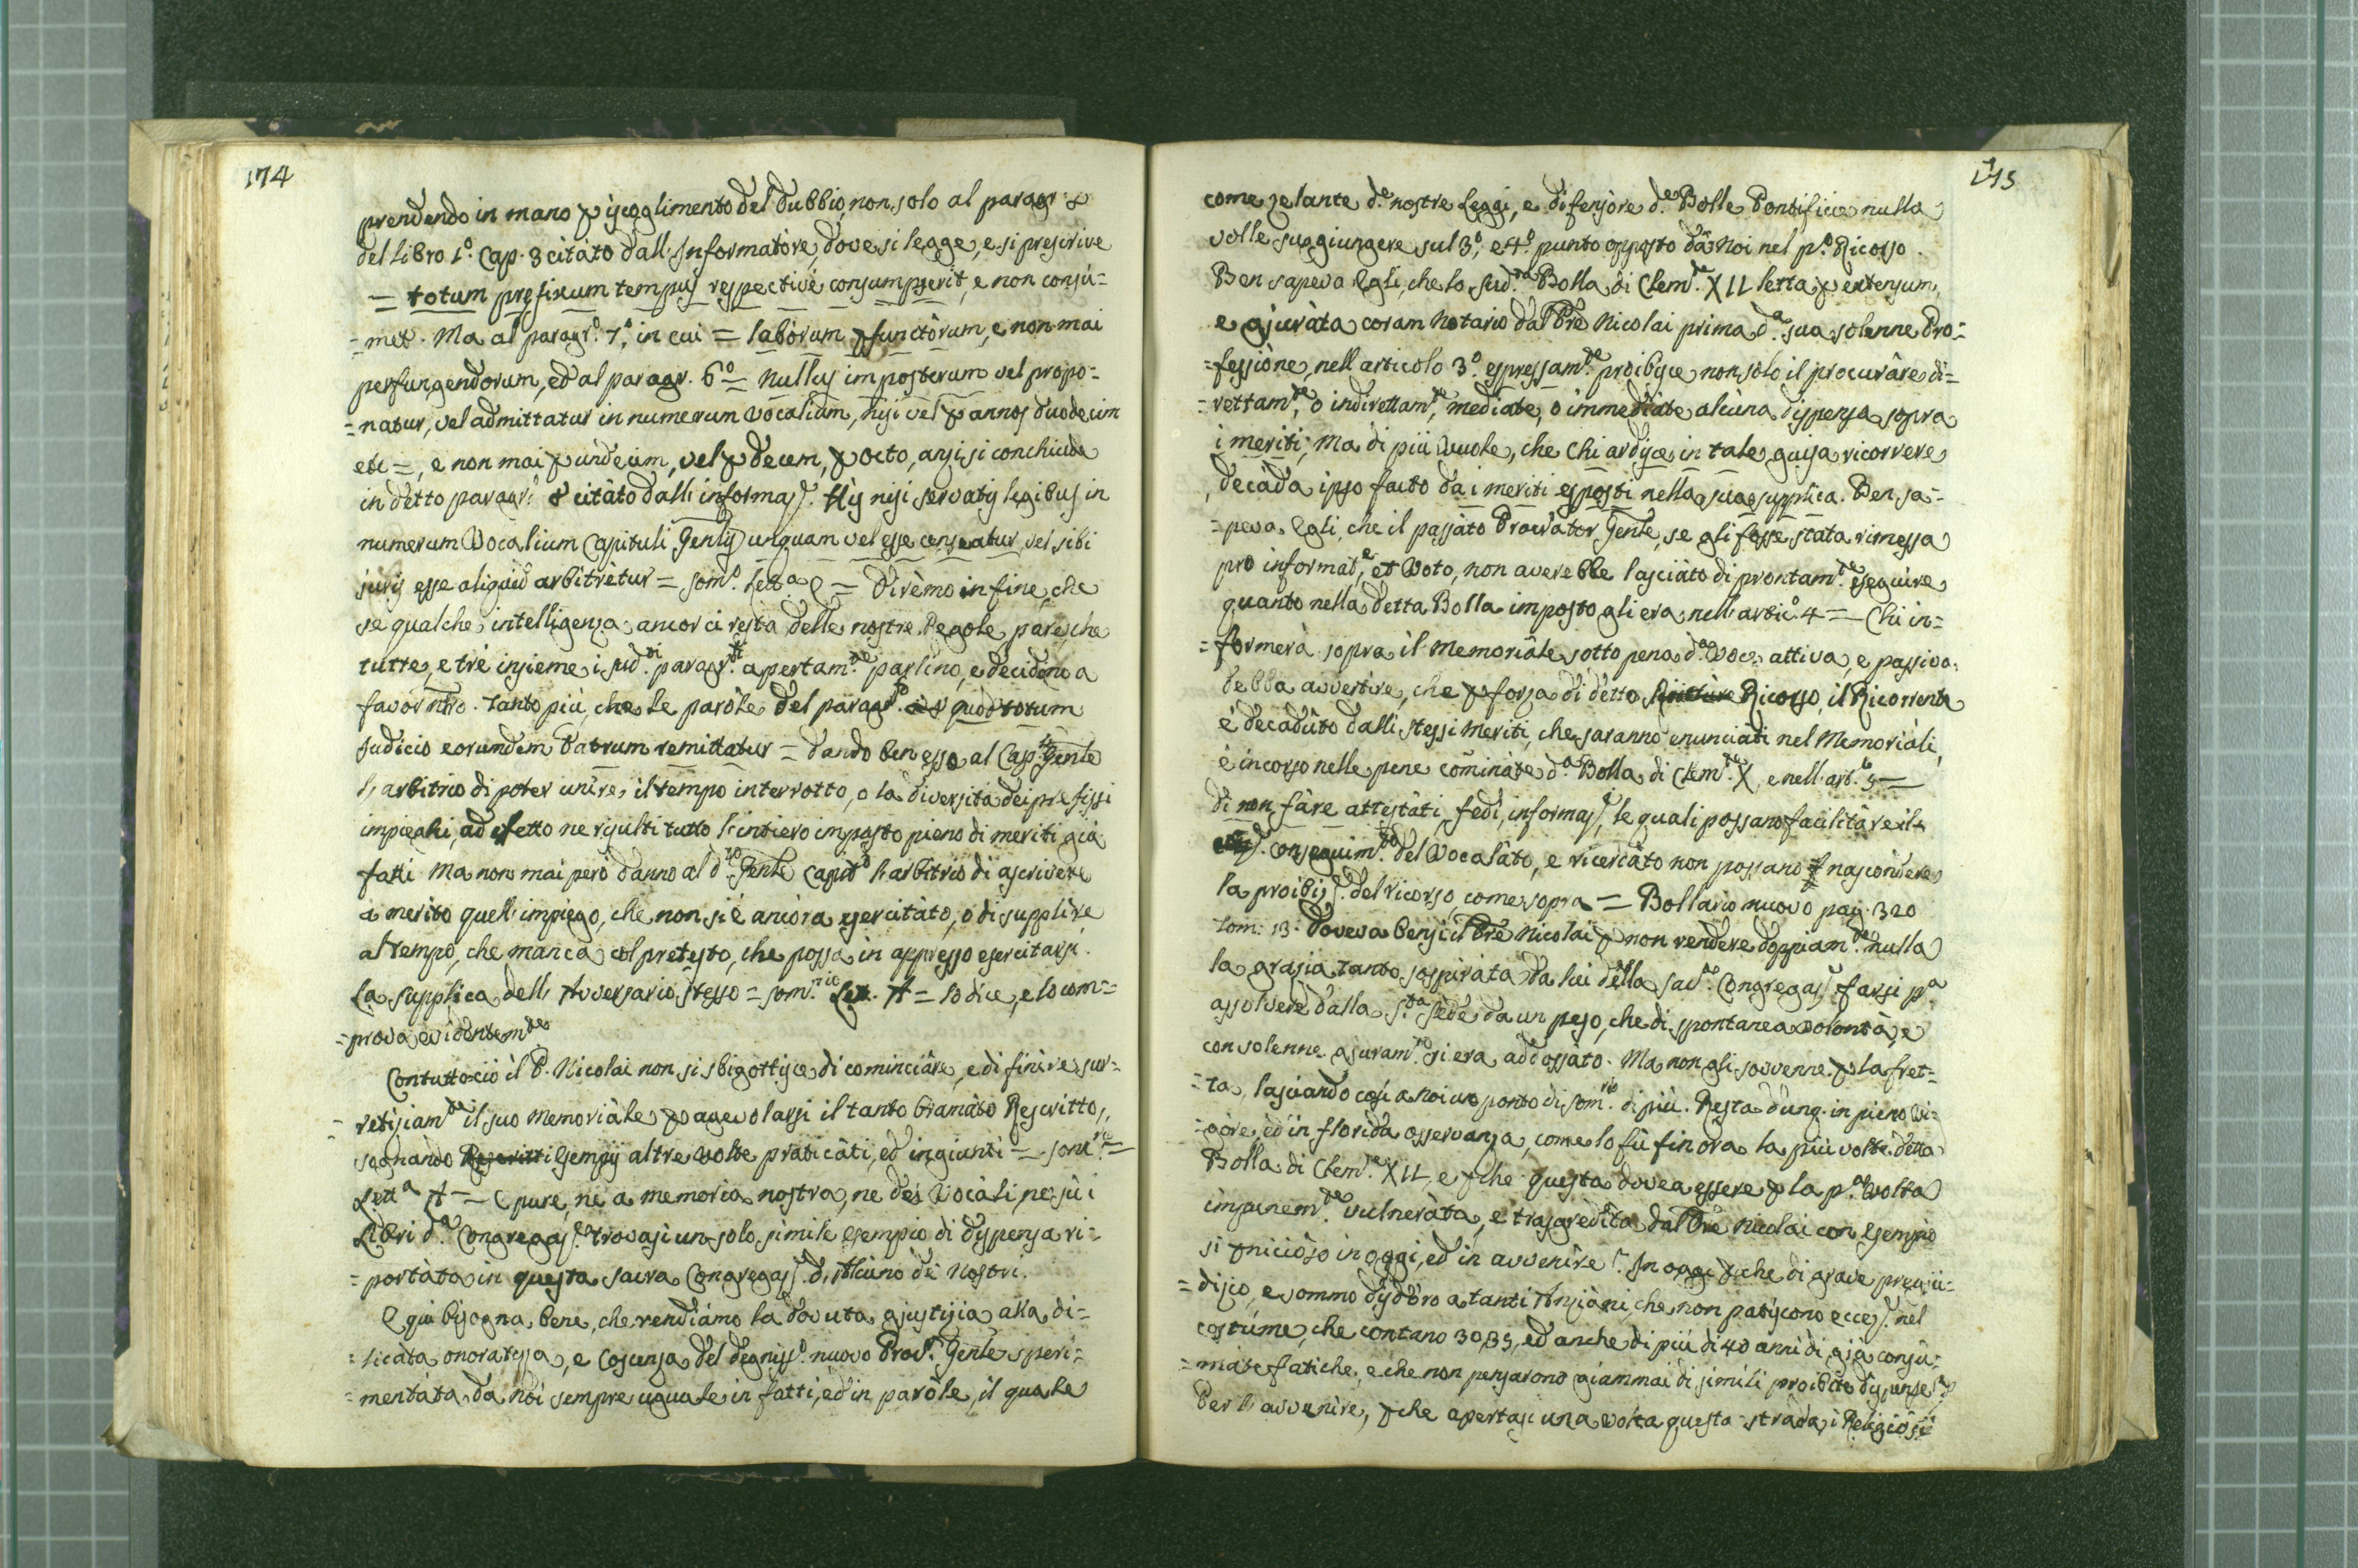 174
prendendo in mano p iscoglimento del dubbio, non solo al paragr. 8
del libro 1º. Cap. 3 citàto dall'Informatòre, dove si legge, e si prescrive
= totum prefixum tempus respectivè consumpserit, e non consù=
=met. Ma al paragrº. 7º, in cui = laborum pfunctòrum, e non mai
perfungendorum, ed al paragr. 6º = Nullus imposterum vel propo=
=natur, vel admittatur in numerum Vocalium, nisi vel p annos duodecim
etc =, e non mai p undecim, vel p decem, p octo, anzi si conchiude
in detto paragrº. 8 citàto dall'informaz.e His nisi servatis legibus in
numerum Vocalium Capituli Gen̅lis unquam vel esse censeatur, vel sibi
juris esse aliquid arbitrètur = Somº. Lett.a C = Dirèmo in fine, che
se qualche intelligenza ancor ci resta delle nostre Regole, pare, che
tutte, e trè insieme i sud.ti paragr.fi apertam.te parlino, e decidino a
favor nr̅o. Tanto più, che le paròle del paragr.fo 8 quod totum
Judicio eorundem Patrum remittatur = dando ben esso al Cap.lo Gen̅le
l'arbitrio di poter unìre, il tempo interrotto, o la diversità dei prefissi
impieghi, ad effetto ne risulti tutto l'intiero imposto pieno di meriti già
fatti. Ma non mai però danno al d.to Gen̅le Capit.º l'arbitrio di ascrivere
a merito quell'impiego, che non si è ancòra esercitàto, o di supplìre
al tempo, che manca col pretesto, che possa in appresso esercitarsi.
La supplica dell'Avversario stesso = Som.rio Lett. A = lo dice, e lo com=
=prova evidentem.te
Contuttociò il P. Nicolai non si sbigottisce di cominciàre, e di finìre sur=
=retiziam.te il suo Memoriàle p agevolarsi il tanto bramàto Rescritto,
sognando Rescritti Esempij altre volte praticàti, ed ingiunti = Som.rio =
Lett.a A = E pure, nè a memoria nostra, nè dei Vocàli, nè sù i
Libri d.a Congregaz.e trovasi un solo simile esempio di dispensa ri=
=portàta in questa sacra Congregaz.e d'Alcuno dè Nostri.
E quì bisogna bene, che rendiàmo la dovuta giustizia alla di=
=licàta onoratezza, e Coscenza del degniss.º nuovo Proc.r Gen̅le sperì=
=mentàta da noi sempre uguale in fatti, ed in paròle, il quale
175
come zelante d.e nostre Leggi, e difensòre d.e Bolle Pontificie nulla
volle suggiungere sul 3º, e 4º punto opposto da Noi nel p.º Ricorso.
Ben sapeva Egli, che la sud.ta Bolla di Clem.te XII letta p extensum,
e giuràta coram Notario dal Pr̅e Nicolai prima d.a sua solenne Pro=
=fessiòne, nell'articolo 3º espressam.te proibisce non solo il procuràre di=
=rettam.te, o indirettam.te, mediate, o immediàte alcuna dispensa sopra
i meriti; Ma di più Vuole, che Chi ardisce in tale guisa ricorrere
, decàda ipso facto da i meriti esposti nella sua supplica. Ben sa=
=peva Egli, che il passàto Procurator Gen̅le, se gli fosse stata rimessa
pro informat.e, et Voto, non averebbe lasciàto di prontam.te eseguìre
quanto nella detta Bolla imposto gli era nell'artic.º 4 = Chi in=
=formerà sopra il Memoriàle sotto pena d.a Voce attiva, e passiva
debba avvertìre, che p forza di detto Ricorso, il Ricorrente
è decadùto dalli stessi meriti, che saranno enunciàti nel Memoriàli,
è incorso nelle pene cominàte d.a Bolla di Clem.te X, e nell'art.º 5 =
di non fàre attestàti, fedi, informaz.i, le quali possano facilitàre il
conseguim.to del Vocalàto, e ricercàto non possano nascòndere
la proibiz.e del ricorso, come sopra = Bollario nuovo pag. 320
Tom: 13. Doveva bensì il Pr̅e Nicolai p non rendere doppiam.te nulla
la grazia tanto sospiràta da lui della Sac.a Congregaz.e farsi p.a
assolvere dalla S.ta Sede da un peso, che di spontanea volontà, e
con solenne giuram.to si era addossàto. Ma non gli sovvenne p la fret=
=ta, lasciando così a Noi un ponto di Som.rio di più. Resta dunq. in pieno vi=
=gòre, ed in florida osservanza, come lo fù fin ora la più volte detta
Bolla di Clem.te XII, e pche questa dovea essere p la p.a volta
impunem.te vulneràta, e trasgredìta dal Pr̅e Nicolai con Esempio
sì pniciòso in oggi, ed in avvenìre? In oggi pche di grave pregiù=
=dizio, e sommo disdòro a tanti Anziàni, che non patiscono eccez.e nel
costùme, che contano 30, 35, ed anche di più di 40 anni di già consù=
=màte fatiche, e che non pensarono giammai di simili proibite dispense?
Per l'avvenìre, pche apertasi una volta questa strada, i Religiòsi